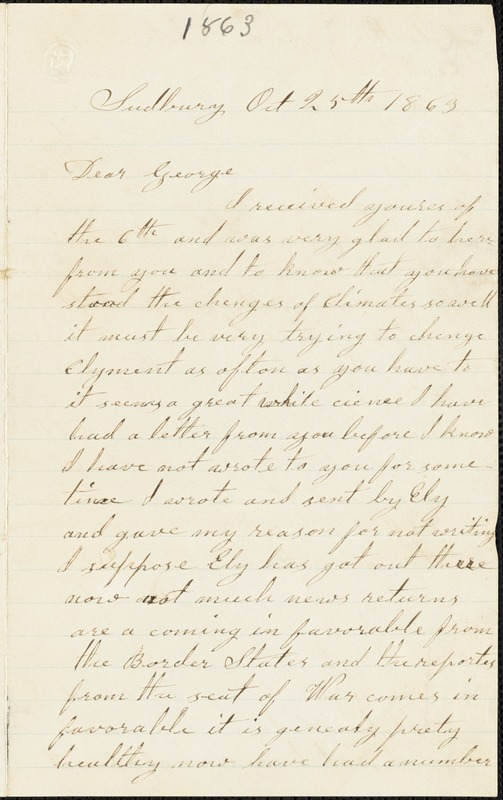 1863
Sudbury Oct 25th 1863
Dear George
I received youres of
the 6th and was very glad to here
from you and to know that you have
stood the chenges of Climates so well
it must be very trying to chenge
Clyment as ofton as you have to
it seems a great while cience I have
had a letter from you before I know
I have not wrote to you for some-
time I wrote and sent by Ely
and gave my reason for not writing
I suppose Ely has got out there
now not much news returns
are a coming in favorable from
the Border States and the reportes
from the seat of War comes in
favorable it is genealy prety
healthy now have had a number